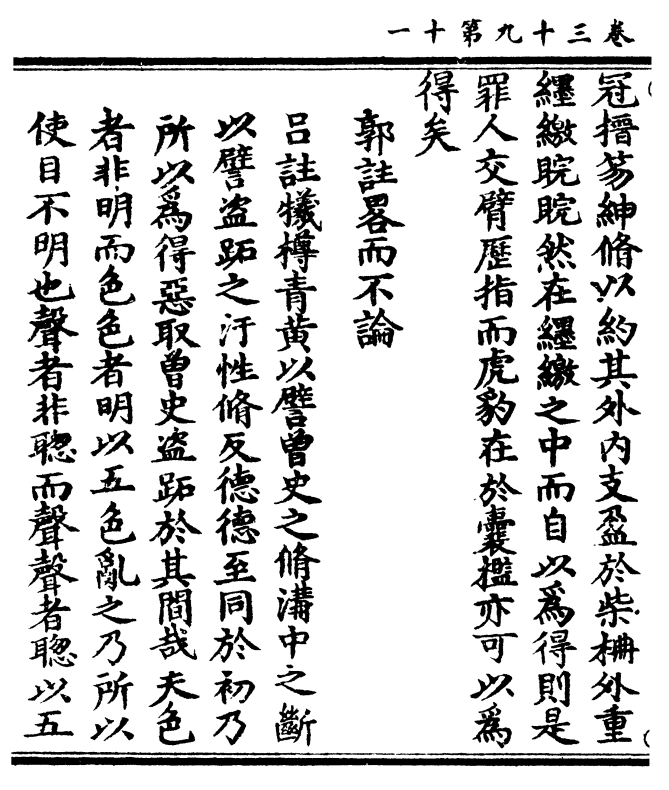 卷三十九第十一
冠搢笏紳脩以約其外內支盈於柴柵外重
纆繳睆睆然在纆繳之中而自以爲得則是
罪人交臂歷指而虎豹在於囊檻亦可以爲
得矣
郭註畧而不論
呂註犧樽青黃以譬曾史之脩溝中之斷
以譬盜跖之汙性脩反德德至同於初乃
所以爲得惡取曾史盜跖於其間哉夫色
者非明而色色者明以五色亂之乃所以
使目不明也聲者非聦而聲聲者聦以五